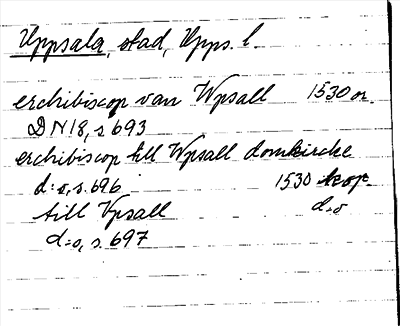 Uppsala, stad, Upps. l.
erchibiscop van Wpsall 1530 or.
DN 18, s 693
erchibiscop till Wpsall domkircke
d:o, s. 696 1530 kop.
till Vpsall d.o
d:o, s. 697